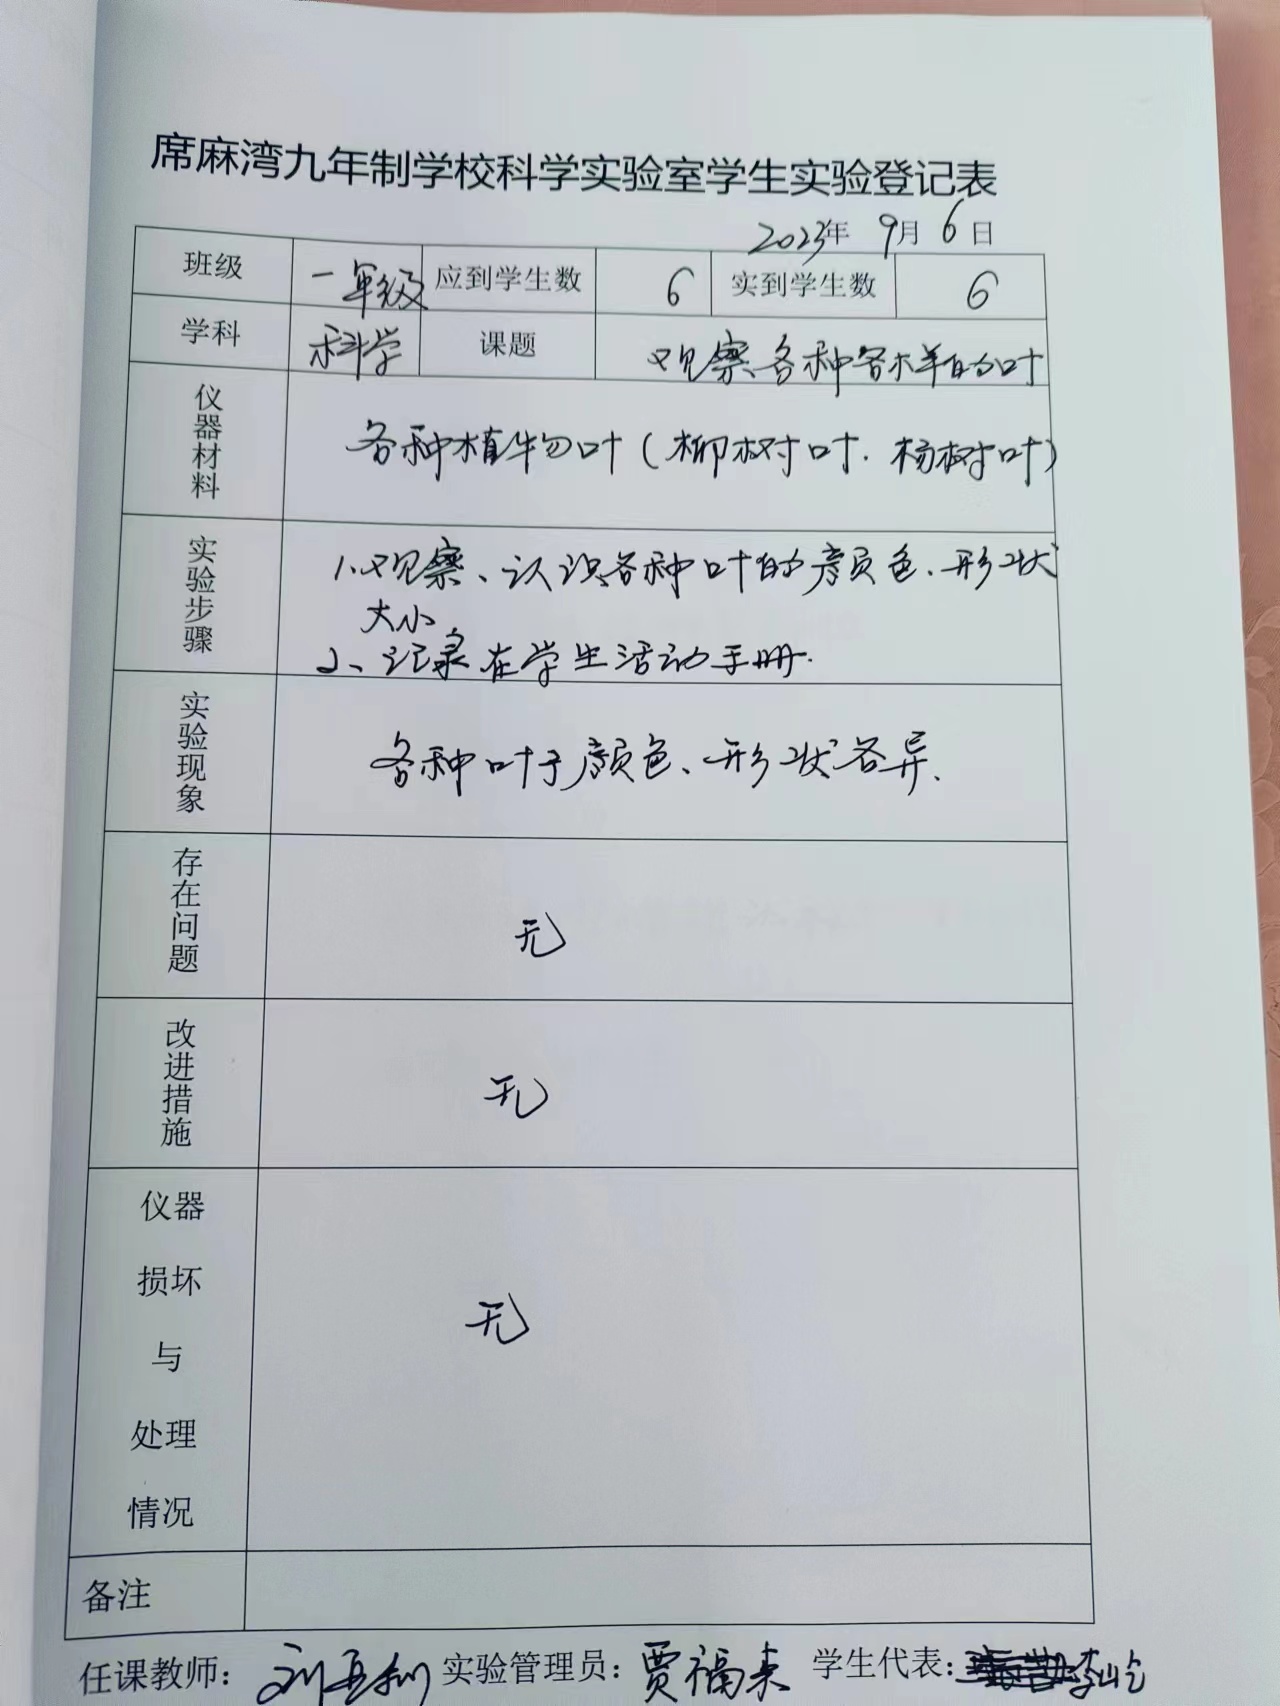 席麻湾九年制学校科学实验室学生实验登记表
2023年 9月 6日
班级 一年级 应到学生数 6 实到学生数 6
学科 科学 课题 观察各种各样的叶
仪器材料 各种植物叶（柳树叶．杨树叶）
实验步骤 1、观察、认识各种叶的颜色、形状
大小
2、记录在学生活动手册．
实验现象 各种叶子颜色、形状各异．
存在问题 无
改进措施 无
仪器
损坏
与
处理
情况
无
备注
任课教师： 实验管理员：贾福来 学生代表：